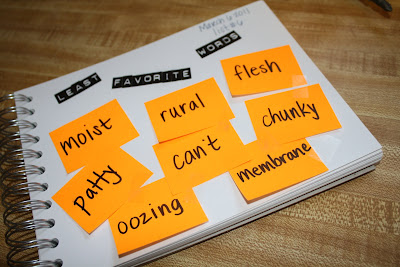 March 6 2011
list #6
LEAST FAVORITE WORDS
moist
rural
flesh
patty
can't
chunky
oozing
membrane